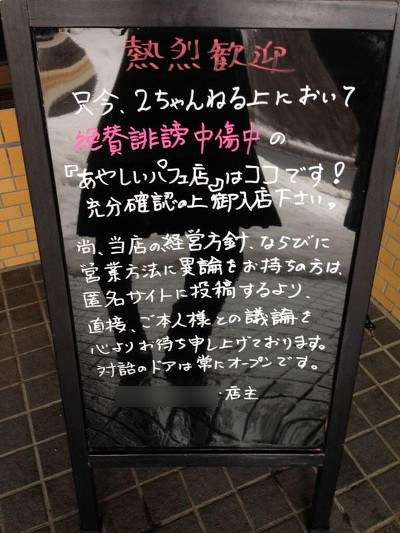 熱烈歓迎
只今、2ちゃんねる上において
絶賛誹謗中傷中の
『あやしいパフェ店』はココです!
充分確認の上御入店下さい。
尚、当店の経営方針、ならびに
営業方法に異論をお持ちの方は、
匿名サイトに投稿するより、
直接、ご本人様との議論を
心よりお待ち申し上げております。
対話のドアは常にオープンです。
・店主